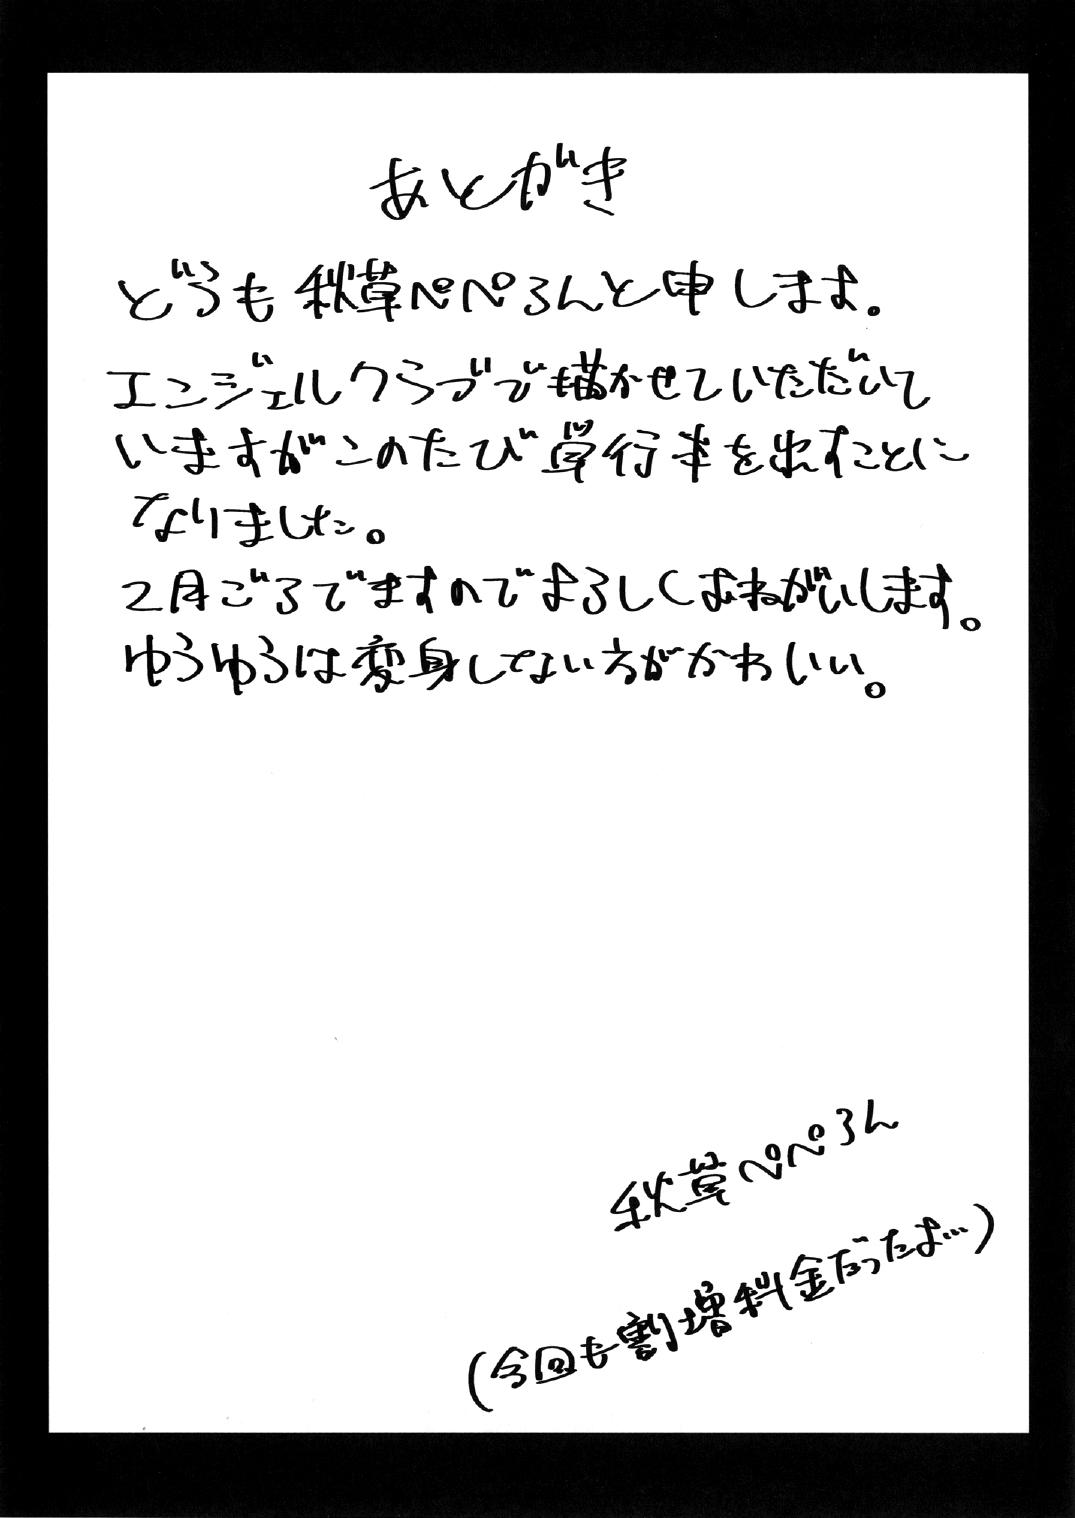 あとがき
どうも秋草ぺぺろんと申します。
エンジェルクラブで描かせていただいて
いますがこのたび単行本を出すことに
なりました。
2月ごろでますのでよろしくおねがいします。
ゆうゆうは変身してない方がかわいい。
秋草ぺぺろん
(今回も割増料金だったよ…)